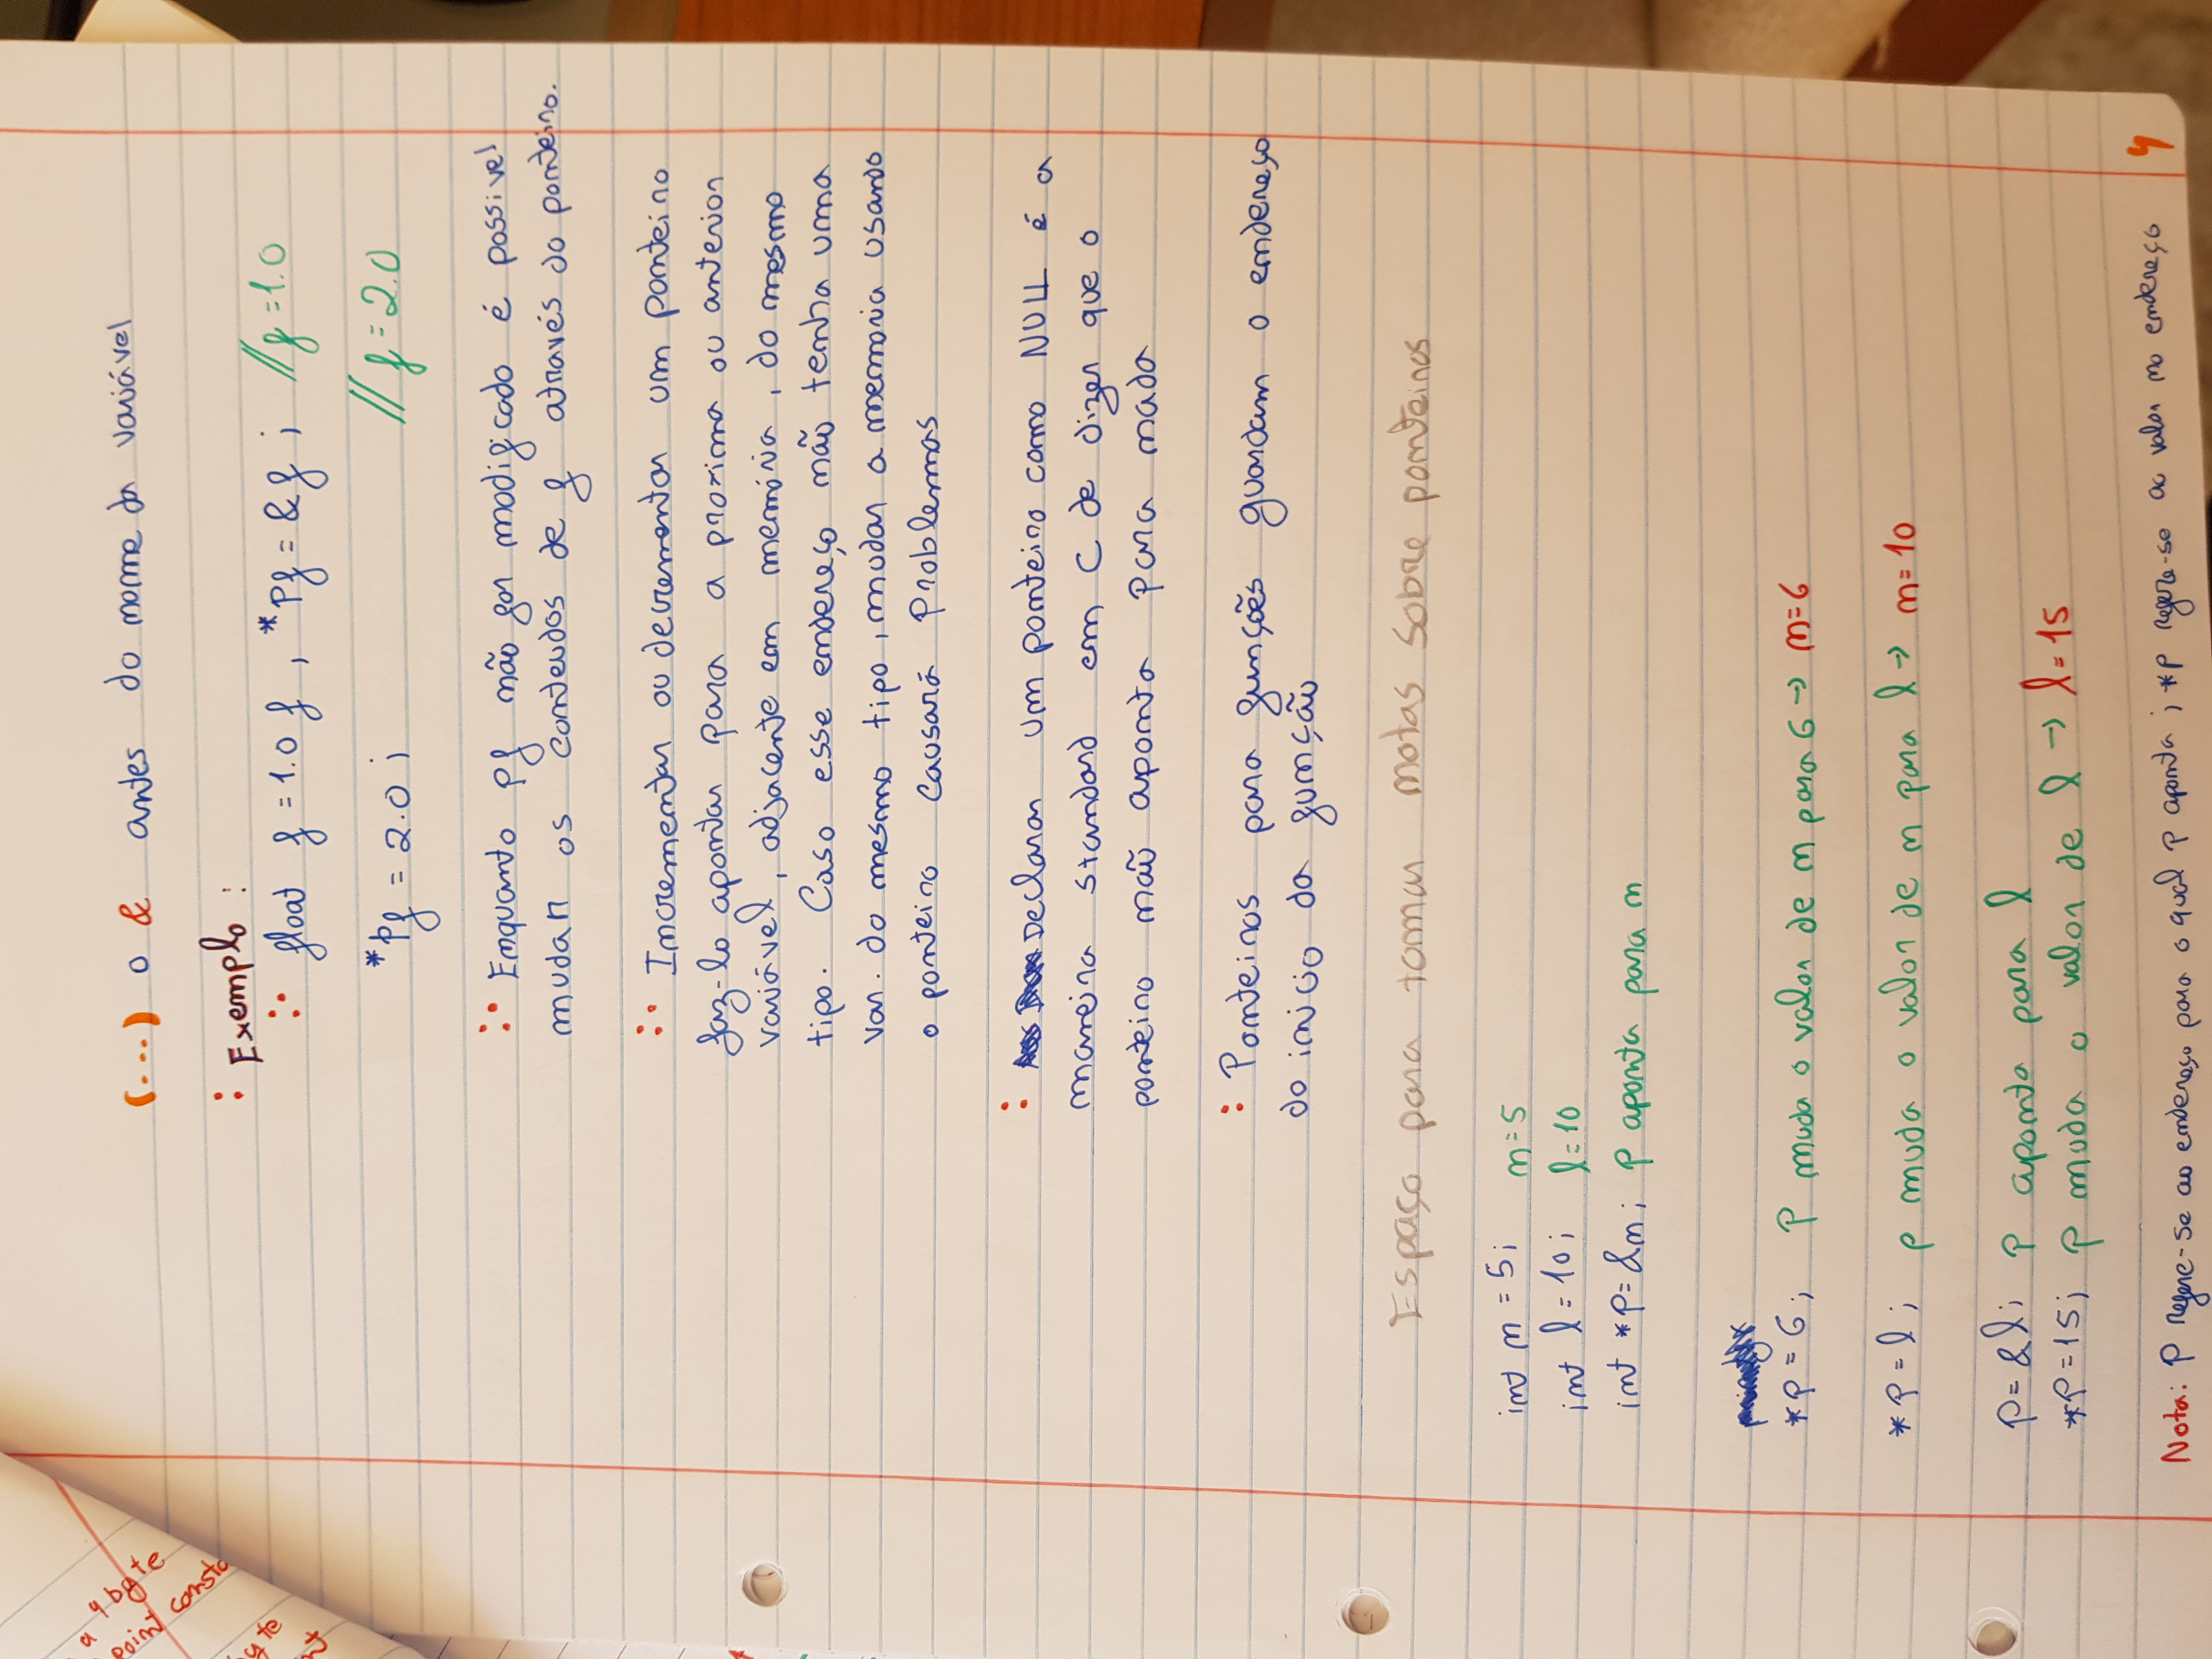 a 4byte
point consta
(...) o & antes do nome da variável
: Exemplo :
float f = 1.0 f , *pf = &f ; //f = 1.0
*pf = 2.0 ; // f = 2.0
Enquanto pf não for modificado é possivel
mudar os conteudos de f através do ponteiro.
Incrementar ou decrementar um ponteiro
faz-lo apontar para a proxima ou anterior
variável, adjacente em memória, do mesmo
tipo. Caso esse endereço não tenha uma
var. do mesmo tipo, mudar a memoria usando
o ponteiro causará problemas
: Declarar um ponteiro como NULL é a
maneira standard em C de dizer que o
ponteiro não aponta para nada
: Ponteiros para funções guardam o endereço
do inicio da função
Espaço para tomar notas sobre ponteiros
int n = 5; n=5
int l = 10; l=10
int *p=&n; p aponta para n
*p = 6; p muda o valor de n para 6 → n=6
*p = l; p muda o valor de n para l → n=10
p=&l; p aponta para l
*p=15; p muda o valor de l → l=15
Nota: p refere-se ao endereço para o qual p aponta ; *p refere-se ao valor no endereço
4